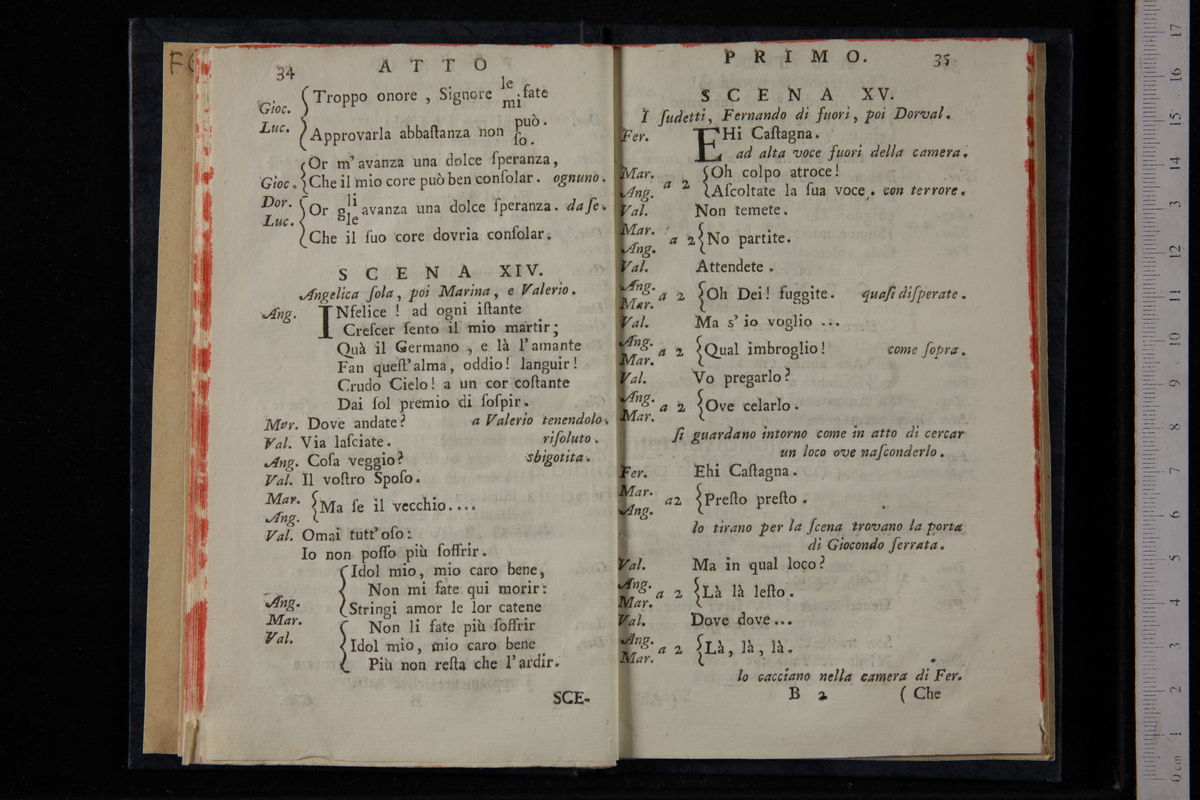 34 ATTO
Troppo onore , Signore le/mi fate
Gioc.
Luc. Approvarla abbaſtanza non può./ſo.
Or m' avanza una dolce ſperanza,
Gioc. Che il mio core può ben conſolar. ognuno.
Dor. Or gli/gle avanza una dolce ſperanza. da ſe.
Luc.
Che il ſuo core dovria conſolar.
SCENA XIV.
Angelica ſola, poi Marina, e Valerio.
Ang. INfelice ! ad ogni iſtante
Creſcer ſento il mio martir;
Quà il Germano , e là l'amante
Fan queſt'alma, oddio! languir!
Crudo Cielo! a un cor coſtante
Dai ſol premio di ſoſpir.
Mar. Dove andate? a Valerio tenendolo.
Val. Via laſciate. riſoluto.
Ang. Coſa veggio? sbigotita.
Val. Il voſtro Spoſo.
Mar. Ma ſe il vecchio....
Ang.
Val. Omai tutt'oſo:
Io non poſſo più ſoffrir.
Idol mio, mio caro bene,
Non mi fate qui morir:
Ang. Stringi amor le lor catene
Mar. Non li fate più ſoffrir
Val. Idol mio, mio caro bene
Più non reſta che l'ardir.
SCE-
PRIMO. 35
SCENA XV.
I ſudetti, Fernando di fuori, poi Dorval.
Fer. EHi Caſtagna.
ad alta voce fuori della camera.
Mar. a 2 Oh colpo atroce!
Ang. Aſcoltate la ſua voce. con terrore.
Val. Non temete.
Mar. a 2 No partite.
Ang.
Val. Attendete.
Ang. a 2 Oh Dei! fuggite. quaſi diſperate.
Mar.
Val. Ma s' io voglio ...
Ang. a 2 Qual imbroglio! come ſopra.
Mar.
Val. Vo pregarlo?
Ang. a 2 Ove celarlo.
Mar.
ſi guardano intorno come in atto di cercar
un loco ove naſconderlo.
Fer. Ehi Caſtagna.
Mar. a2 Preſto preſto .
Ang.
lo tirano per la ſcena trovano la porta
di Giocondo ſerrata.
Val. Ma in qual loco?
Ang. a 2 Là là leſto.
Mar.
Val. Dove dove...
Ang. a 2 Là, là, là.
Mar.
lo cacciano nella camera di Fer.
B 2 ( Che
0 cm 1 2 3 4 5 6 7 8 9 10 11 12 13 14 15 16 17